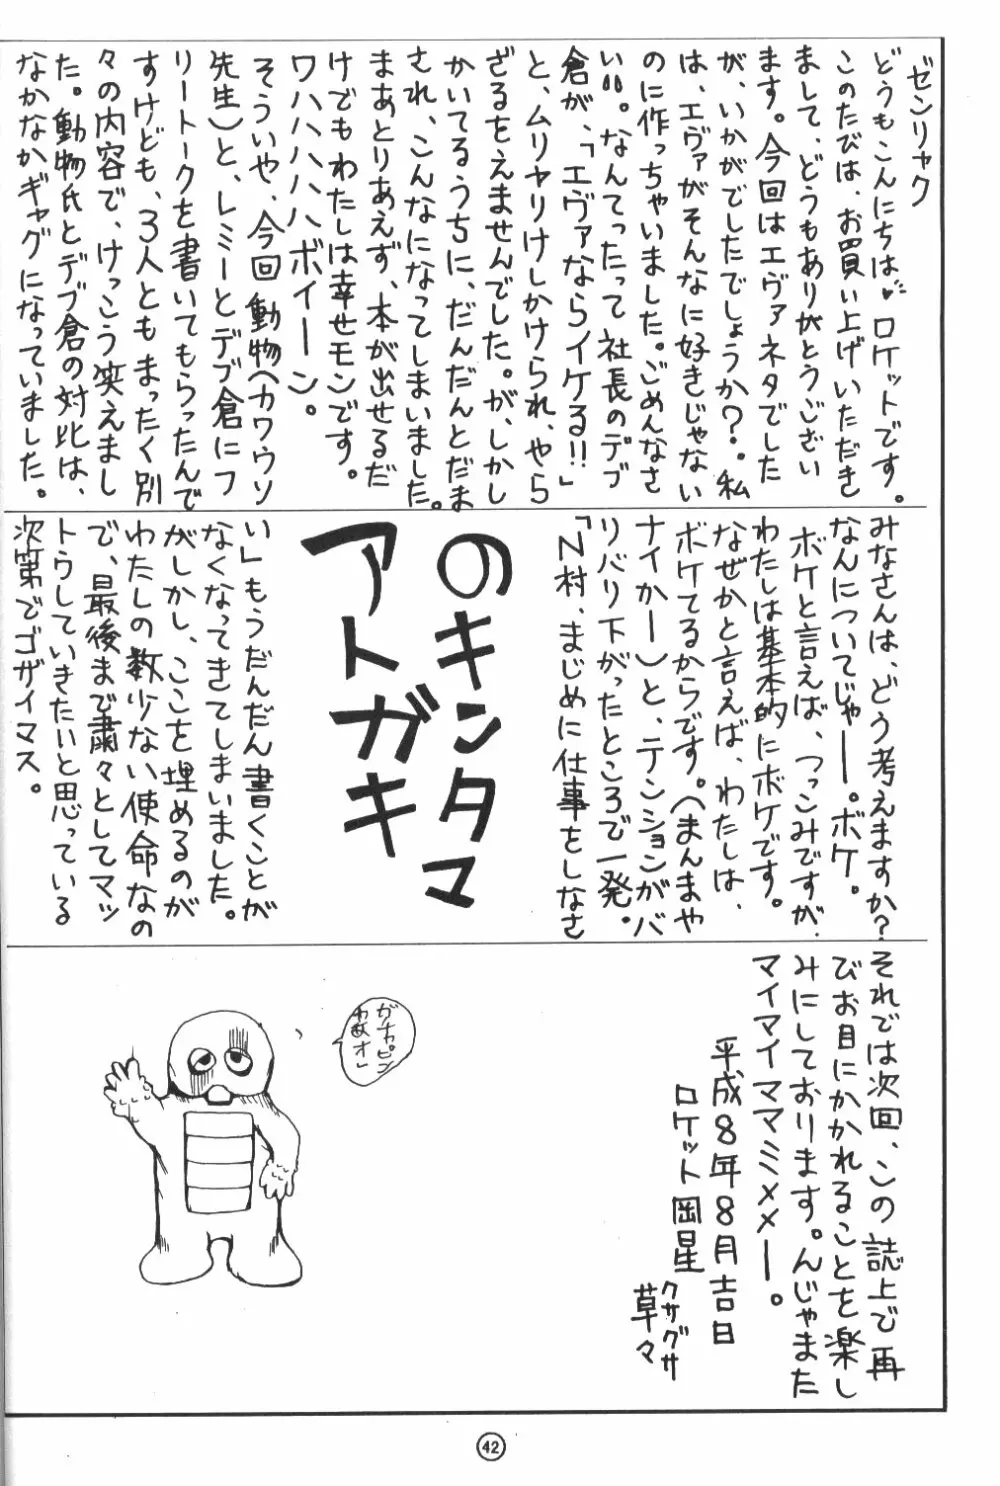 ゼンリャク
どうもこんにちは♥ロケットです。
このたびは、お買い上げいただき
まして、どうもありがとうござい
ます。今回はエヴァネタでした
が、いかがでしたでしょうか?私
は、エヴァがそんなに好きじゃない
のに作っちゃいました。ごめんなさ
い!!。なんてったって社長のデブ
倉が、「エヴァならイケる!!」
と、ムリヤリけしかけられ、やら
ざるをえませんでした。が、しかし
かいてるうちに、だんだんとだま
され、こんなになってしまいました。
まあとりあえず、本が出せるだ
けでもわたしは幸せモンです。
ワハハハハハボイーン)。
そういや、今回動物(カワウソ
先生)と、レミーとデブ倉にフ
リートークを書いてもらったんで
すけども、3人ともまったく別
々の内容で、けっこう笑えまし
た。動物氏とデブ倉の対比は、
なかなかギャグになっていました。
みなさんは、どう考えますか?
なんについてじゃー。ボケ。
ボケと言えば、つっこみですが、
わたしは基本的にボケです。
なぜかと言えば、わたしは、
ボケてるからです。(まんまや
ナイかー)と、テンションがバ
リバリ下がったところで一発。
「N村、まじめに仕事をしなさ
のキンタマ
アトガキ
い」もうだんだん書くことが
なくなってきてしまいました。
がしかし、ここを埋めるのが
わたしの数少ない使命なの
で、最後まで粛々としてマッ
トウしていきたいと思っている
次第でゴザイマス。
それでは次回、この誌上で再
びお目にかかれることを楽し
みにしております。んじゃまた
マイマイママミメメー。
平成8年8月吉日
ロケット岡星
クサグサ
草々
ガチャピン
42